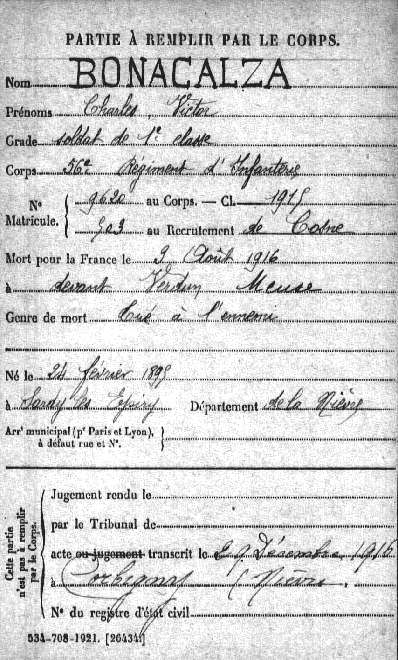 PARTIE À REMPLIR PAR LE CORPS.
Nom BONACALZA
Prénoms Charles, Victor
Grade soldat de 1e classe
Corps 56e Régiment d'Infanterie
N° 9620 au Corps. — Cl. 1915
Matricule. 303 au Recrutement de Cosne
Mort pour la France le 9 Août 1916
à devant Verdun Meuse
Genre de mort Tué à l'ennemi
Né le 24 février 1895
à Sardy les Epiry Département de la Nièvre
Arrt municipal (pr Paris et Lyon),
à défaut rue et N°.
Cette partie
n'est pas à remplir
par le Corps.
Jugement rendu le
par le Tribunal de
acte ou jugement transcrit le 29 Décembre 1916
à Corbigny (Nièvre
N° du registre d'état civil
534-708-1921. [26434]